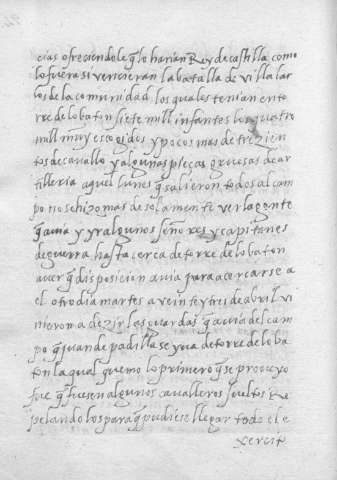 cias ofreciendole q̃ lo harian Rey de castilla como
lo fuera si vencieran la batalla de villalar
los de la comunidad los quales tenian en to
rre de lobaton siete mill infantes los quatro
mill muy escogidos y pocos mas de trezien
tos de cavallo y algunas pieças gruesas de ar
tilleria aquel lunes q̃ salieron todos al cam
po no se hizo mas de solamente ver la gente
q̃ avia y yr algunos señores y capitanes
de guerra hasta cerca de torre de lobaton
a ver q̃ disposicion avia para acercarse a
el otro dia martes a veinte y tres de abril vi
nieron a dezir las guardas q̃ avia del cam
po q̃ juan de padilla se yva de torre de loba
ton la qual quemo lo primero q̃ se proveyo
fue q̃ fuesen algunos cavalleros sueltos Re
pelando los para q̃ pudiese llegar todo el e
xercit